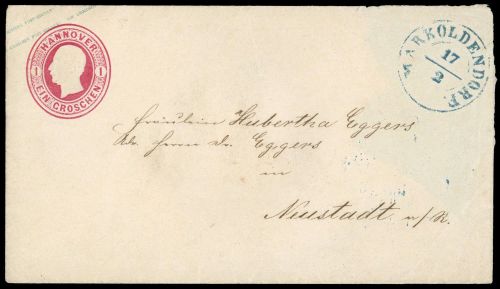 HANNOVER
1 1
EIN GROSCHEN
MARKOLDENDORF
17
2
Fräulein Hubertha Eggers
Herrn Dr. Eggers
in
Neustadt a/R.